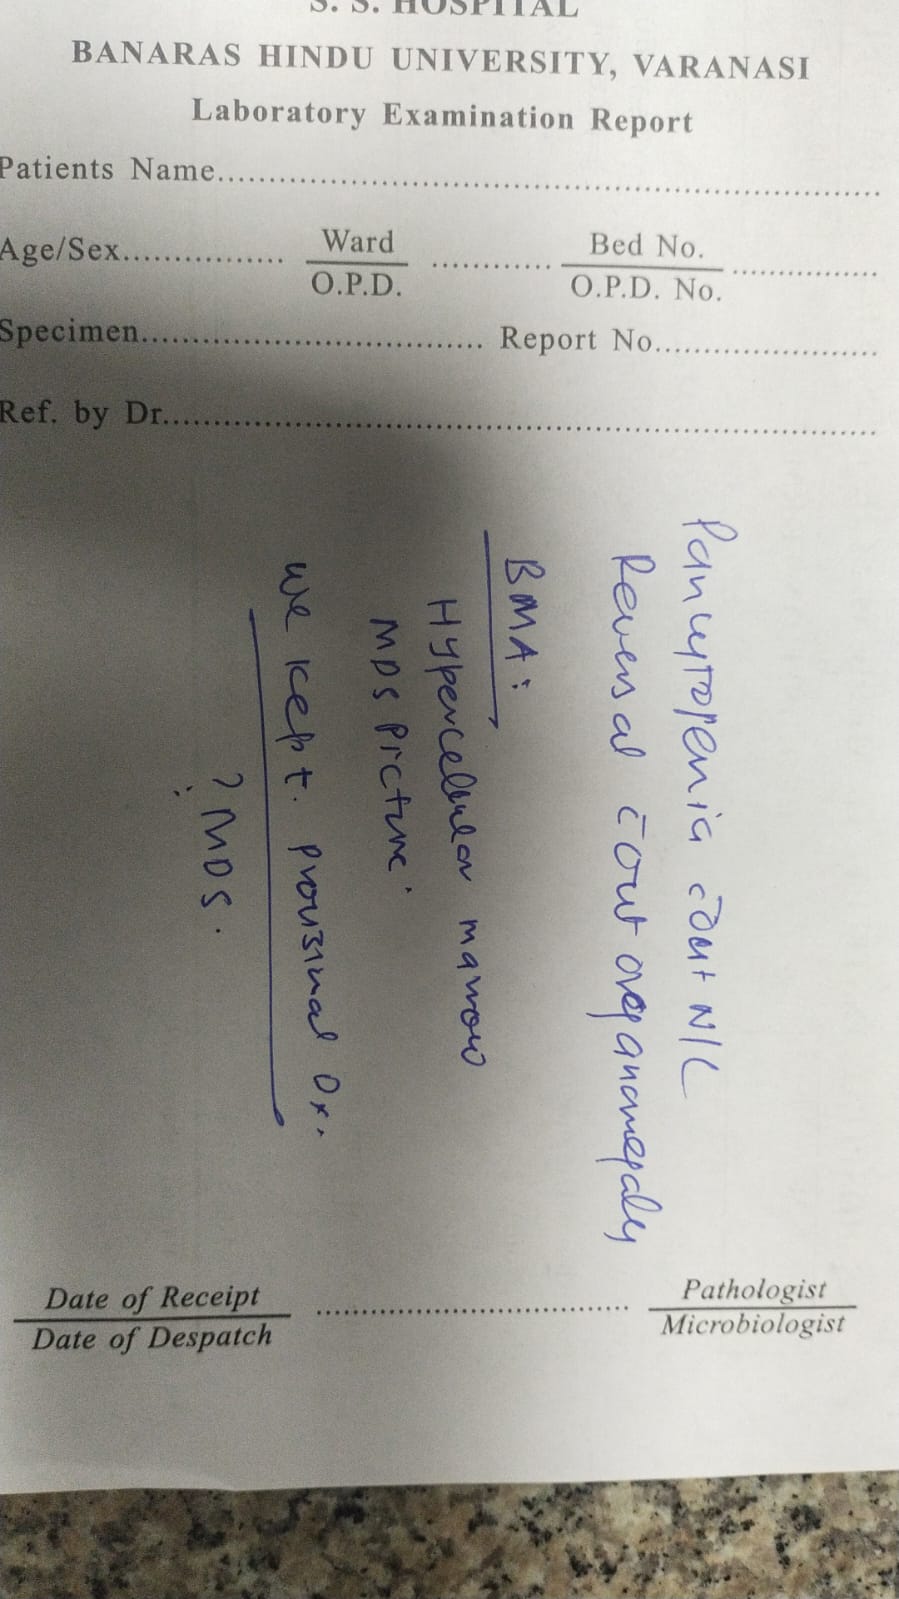 S. S. HOSPITAL
BANARAS HINDU UNIVERSITY, VARANASI
Laboratory Examination Report
Patients Name
Age/Sex Ward Bed No.
O.P.D. O.P.D. No.
Specimen Report No.
Ref. by Dr.
Pancytopenia c̄out N/C
Reversal c̄out organomegaly
BMA:
Hypercellular marrow
MDS picture
we kept. provisinal Dx.
? MDS.
Date of Receipt Pathologist
Date of Despatch Microbiologist